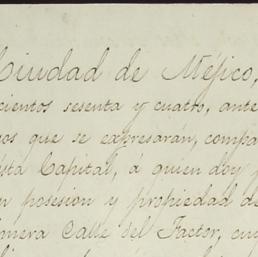 Ciudad de Méjico,
cientos sesenta y cuatro, ante
que se expresarán, compa
esta Capital, á quien doy
posesion y propiedad de
Calle del Factor, cu